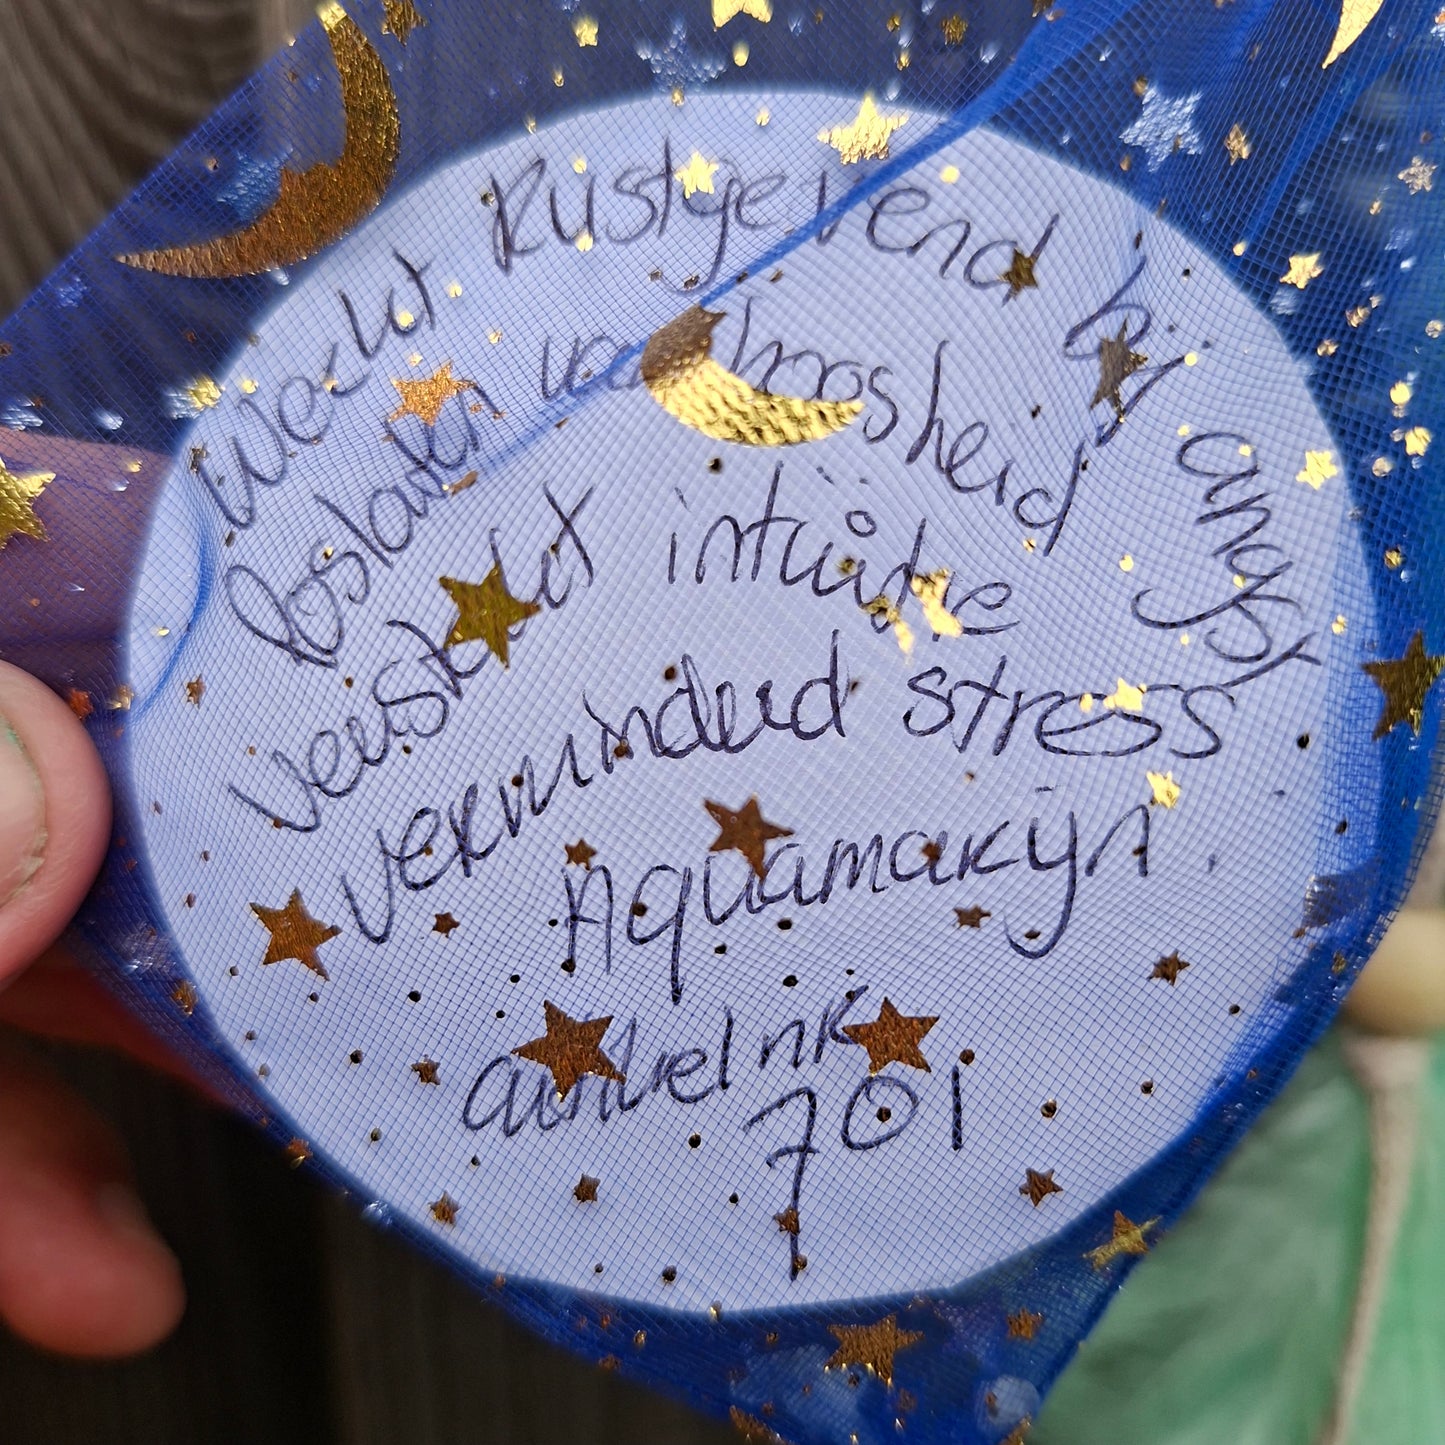 Werkt Rustgevend bij angst
loslaten van boosheid
versterkt intuïtie
verminderd stress
Aquamarijn.
artikelnr
701